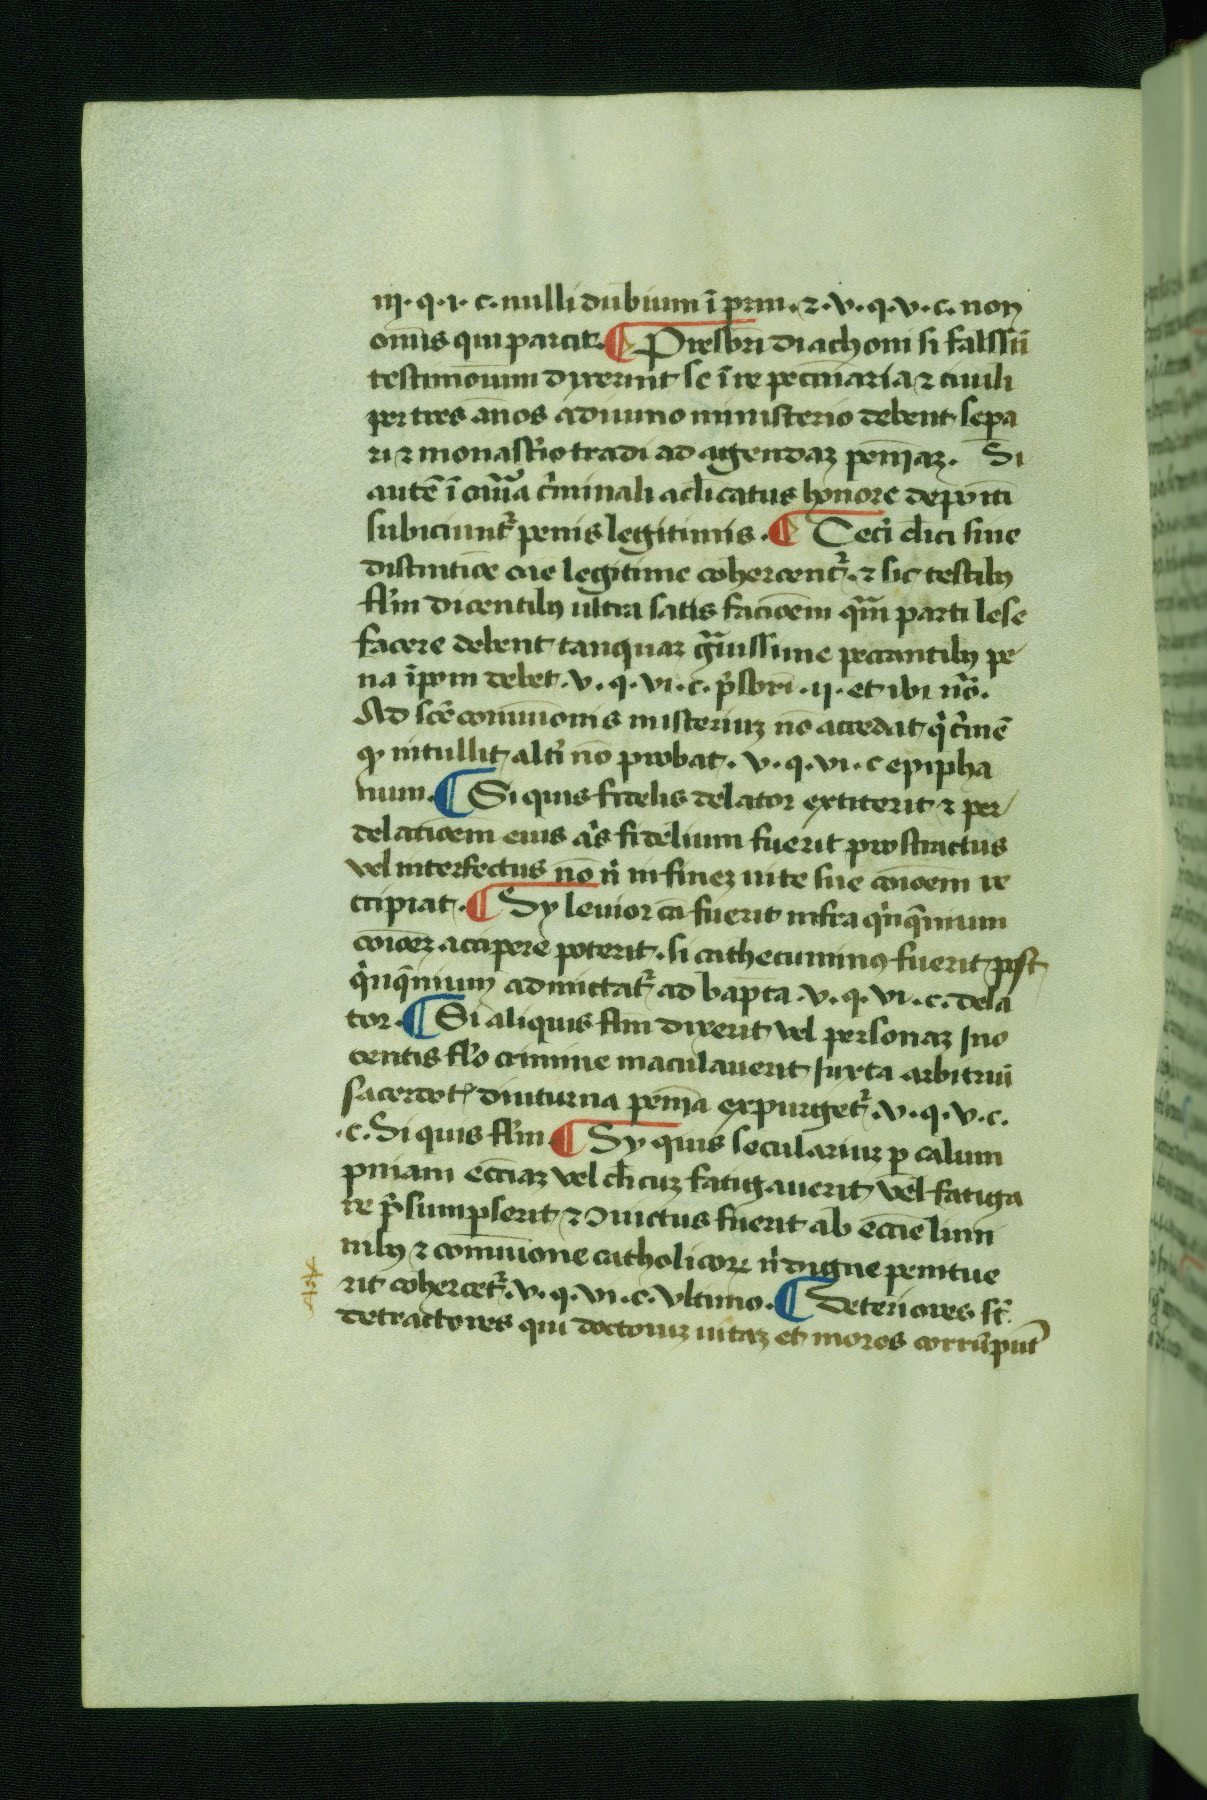 iij. q. i. c. nulli dubium ĩ prin. ⁊ v. q. v. c. non
om̃is qui parcit. ¶ Presbr̃i diachoni si falssũ
testimoniũm dixerint se ĩ re pecuniaria ⁊ ciuili
per tres ãnos a diuino ministerio debent sepa
ri ⁊ monast̃io tradi ad agendaz penĩaz. Si
autẽ ĩ cãũa c̃minali a clicatus honore depoiti
subiciunt̃ penis legitimis. ¶ Cet̃i cl̃ici siue
distinctiõe cãe legitime cohercent̃. ⁊ sic testibꝰ
fl̃m dicentibꝰ ultra satis facioẽm qãm parti lese
facere debent tanquaz gãuissime peccantibꝰ pe
na ĩponi debet. v. q. vi. c. p̃sbrĩ. ij. et ibi nõ.
Ad scẽ comũionis misteriuz nõ accedat q̃ c̃inẽ
qꝫ intullit alt̃i nõ probat. v. q. vi. c epipha
nium. ¶ Si quis fidelis delator extiterit ⁊ per
delatioẽm eius aĩs fidelium fuerit prostractus
vel interfectus nõ ñ in finez uite sue cõioẽm re
ccipiat. ¶ Sy leuior cã fuerit infra q̃nq̃nnium
cõioẽz accipere poterit. si cathecuminꝰ fuerit post
q̃nq̃nnium admictat̃ ad bapta. v. q. vi. c. dela
tor. ¶ Si aliquis fl̃m dixerit vel personaz Ino
centis fl̃o crimine maculauerit Iuxta arbitriũ
sacerdot̃ diuturna penĩa expurget̃. v. q. v. c.
.c. Si quis fl̃m ¶ Sy quis seculariuz p calum
pniam eccĩaz vel cl̃icuz fatigauerit vel fatiga
re p̃sumpserit ⁊ ɔuictus fuerit ab eccĩe limi
nibꝰ ⁊ comũione catholicoꝝ ñ digne penitue
rit cohercet̃. v. q. vi. c. vltimo. ¶ deteriores st̃
detractores qui doctoruz uitaz et mores corrũput̃